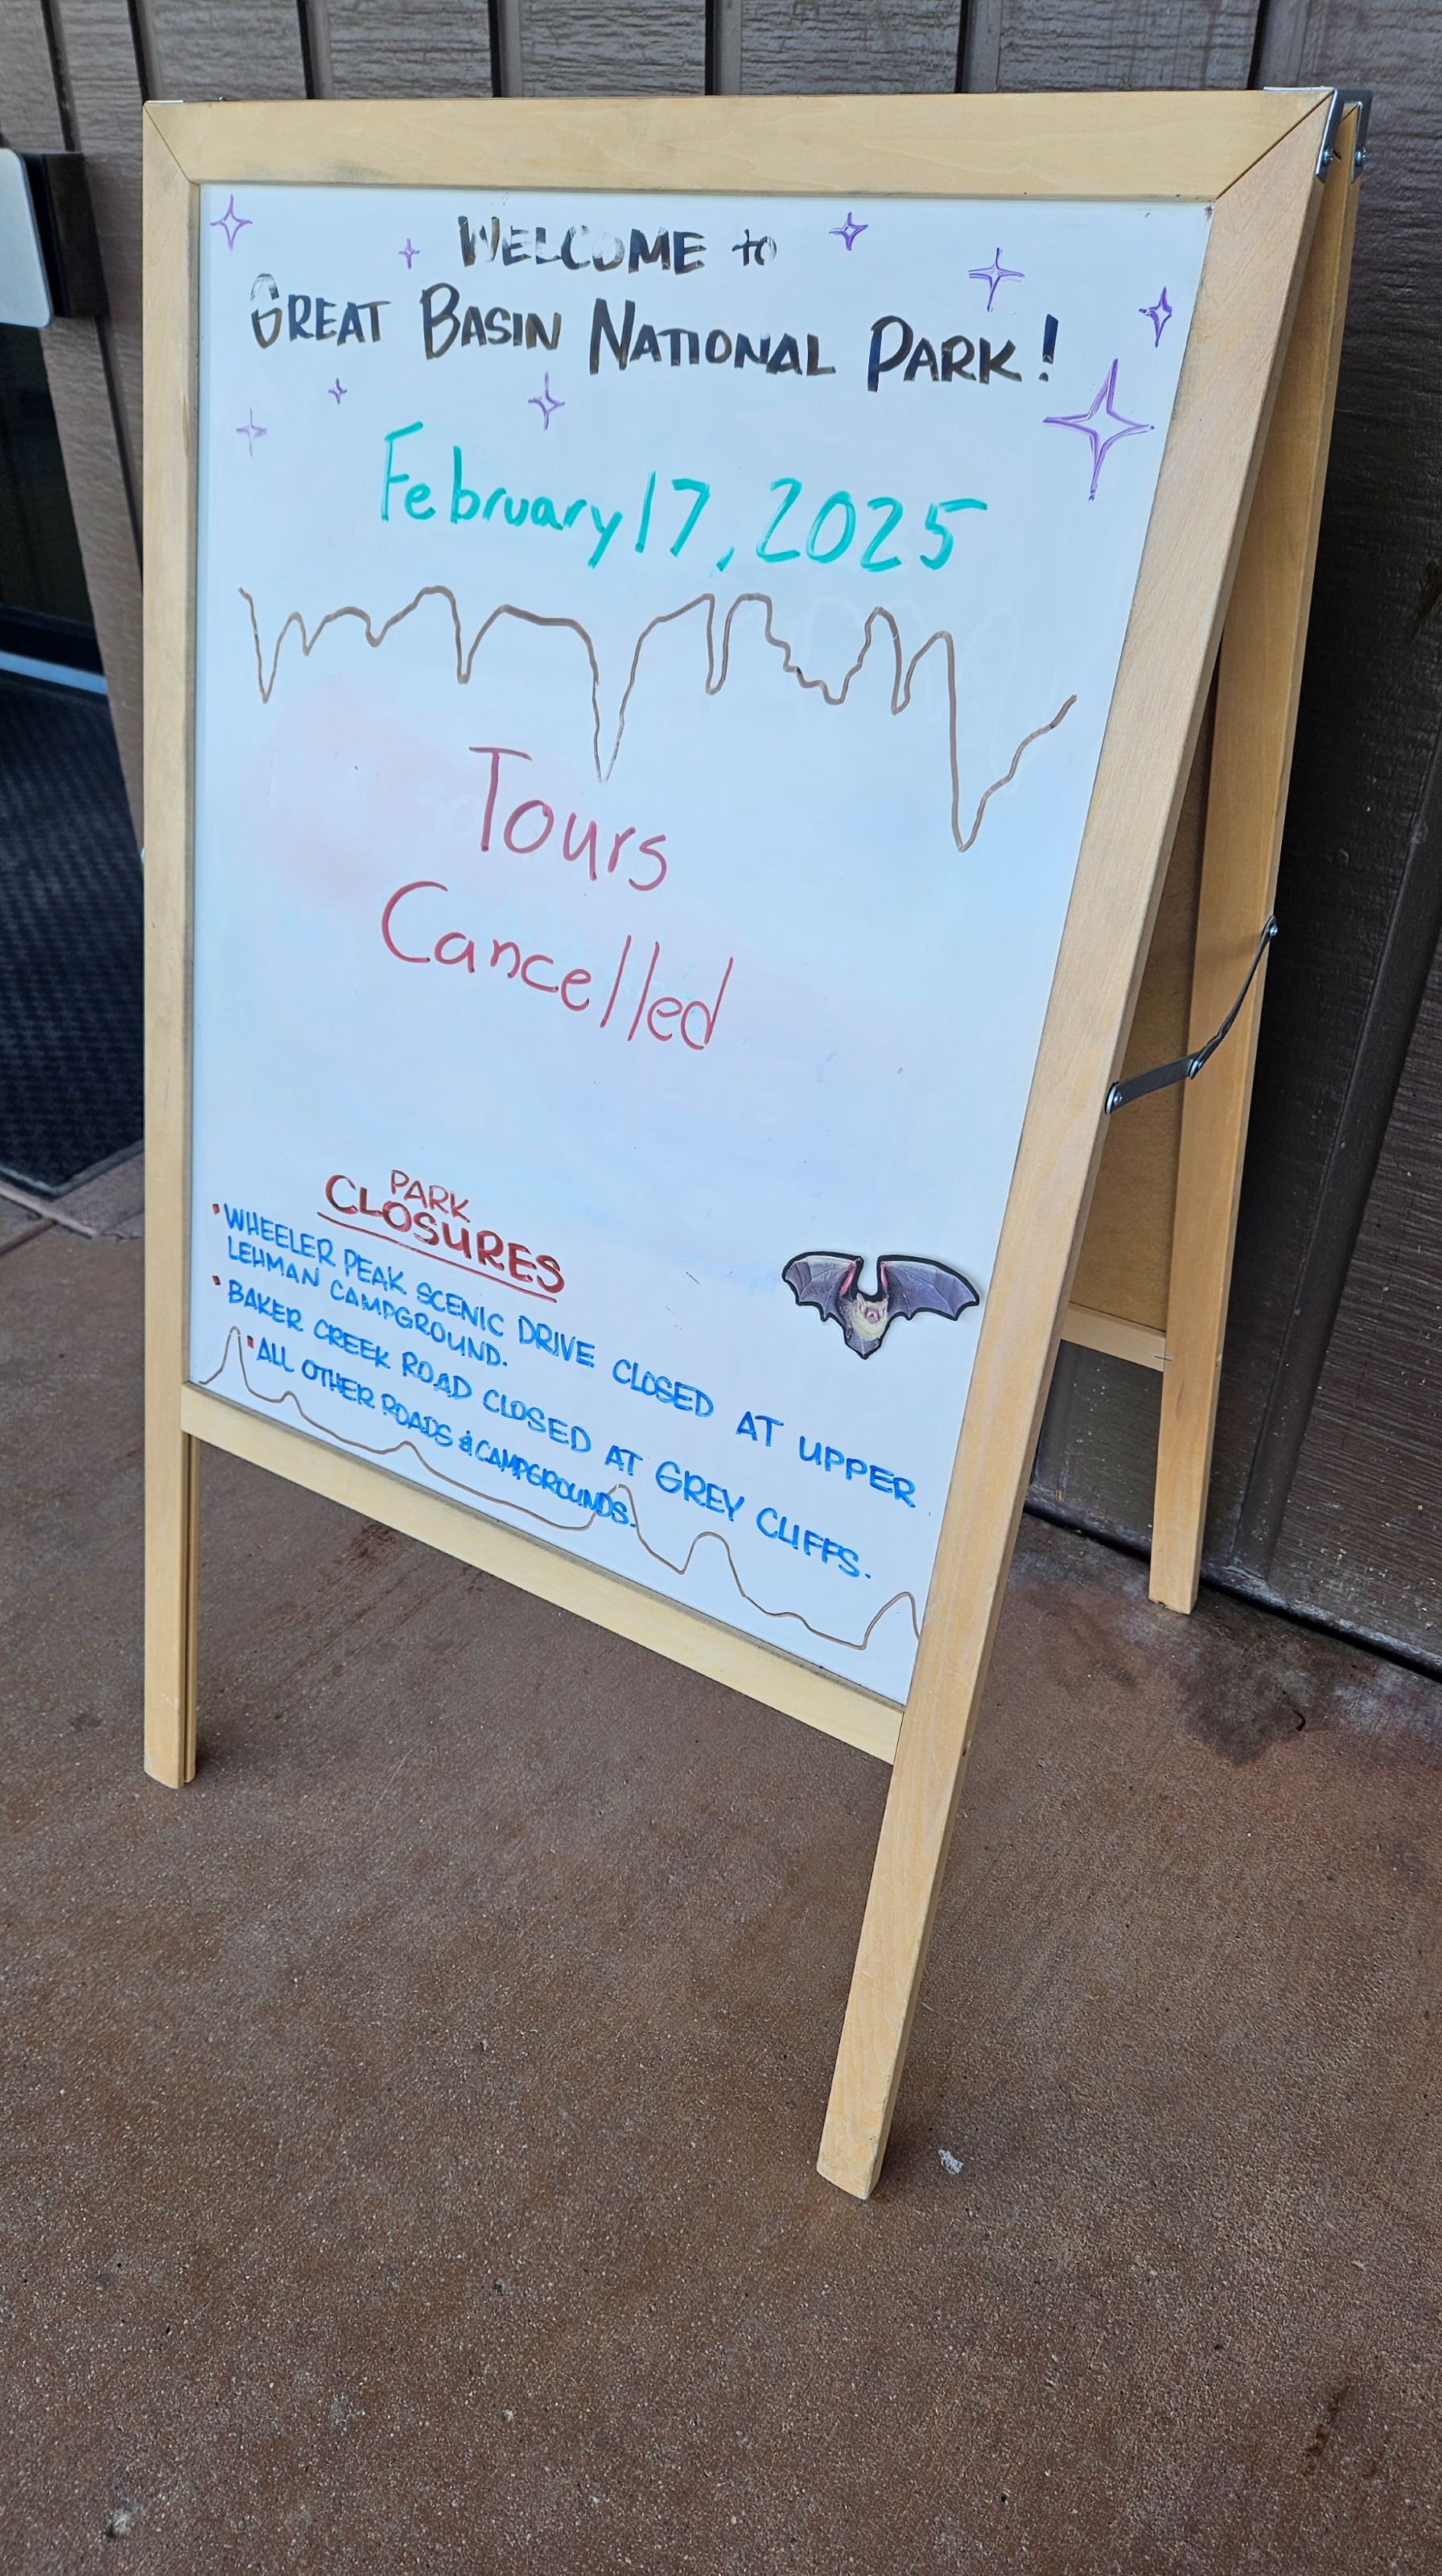 WELCOME to
GREAT BASIN NATIONAL PARK!
February 17, 2025
Tours
Cancelled
PARK
CLOSURES
• WHEELER PEAK SCENIC DRIVE CLOSED AT UPPER
LEHMAN CAMPGROUND.
• BAKER CREEK ROAD CLOSED AT GREY CLIFFS.
• ALL OTHER ROADS & CAMPGROUNDS.